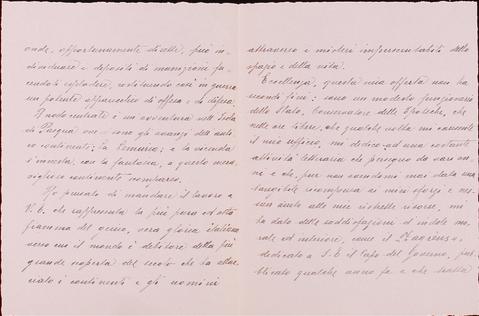 onde, opportunamente dirette, può in-
dividuare i depositi di munizioni fa-
cendoli esplodere, costituendo così in guerra
un potente apparecchio di offesa e di difesa.
Il nodo centrale è un'avventura nell'Isola
di Pasqua ove sono gli avanzi dell'anti-
co continente: la Lemuria; e la vicenda
s'innesta, con la fantasia, a questo mera-
viglioso continente scomparso.
Ho pensato di mandare il lavoro a
V. E. che rappresenta la più pura ed alta
fiamma del genio, vera gloria italiana
verso cui il mondo è debitore della più
grande scoperta del secolo che ha allac-
ciato i continenti e gli uomini
attraverso i misteri imperscrutabili dello
spazio e della vita.
Eccellenza, questa mia offerta non ha
secondi fini: sono un modesto funzionario
dello Stato, Conservatore delle Ipoteche, che
nelle ore libere, che qualche volta mi consente
il mio ufficio, mi dedico ad una costante
attività letteraria che perseguo da vari an-
ni e che, pur non avendomi mai dato una
tangibile ricompensa ai miei sforzi e nes-
sun aiuto alle mie risorse, mi
ha dato delle soddisfazioni d'indole mo-
rale ed interiore, come il
dedicato a S. E. il Capo del Governo, pub-
blicato qualche anno fa e che